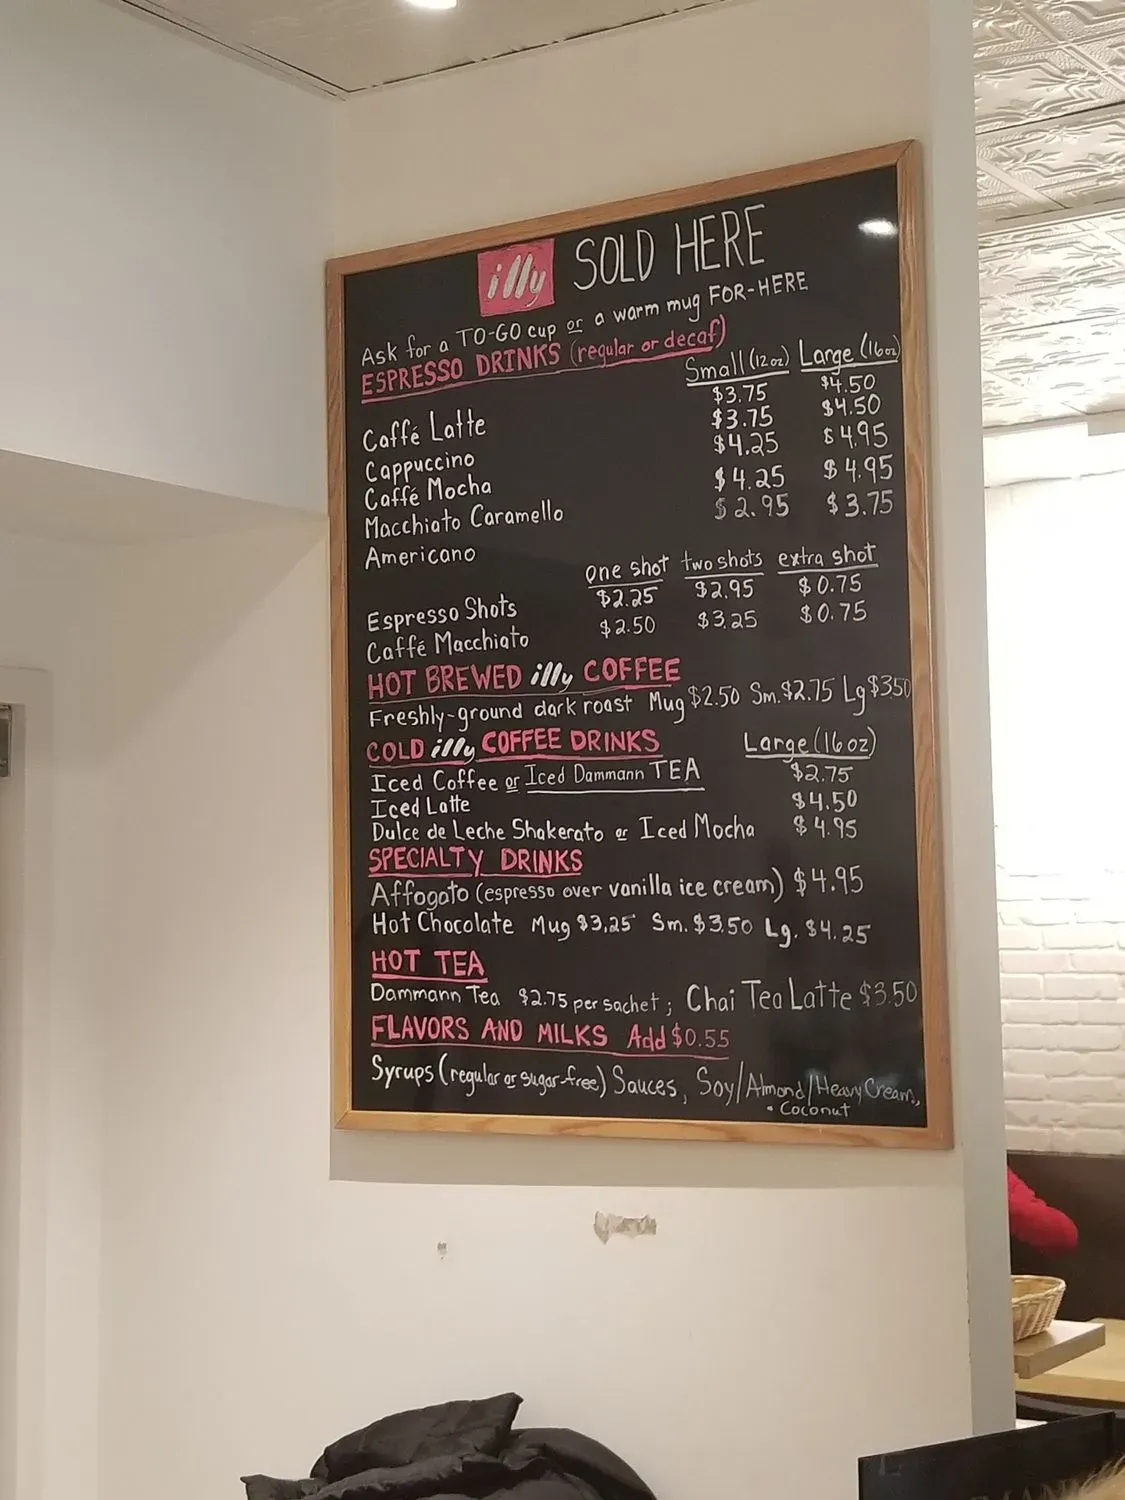 illy SOLD HERE
Ask for a TO-GO cup or a warm mug FOR-HERE
ESPRESSO DRINKS (regular or decaf)
Small (12oz) Large (16oz)
Caffé Latte $3.75 $4.50
Cappuccino $3.75 $4.50
Caffé Mocha $4.25 $4.95
Macchiato Caramello $4.25 $4.95
Americano $2.95 $3.75
one shot two shots extra shot
Espresso Shots $2.25 $2.95 $0.75
Caffé Macchiato $2.50 $3.25 $0.75
HOT BREWED illy COFFEE
Freshly-ground dark roast Mug $2.50 Sm. $2.75 Lg $3.50
COLD illy COFFEE DRINKS Large (16oz)
Iced Coffee or Iced Dammann TEA $2.75
Iced Latte $4.50
Dulce de Leche Shakerato or Iced Mocha $4.95
SPECIALTY DRINKS
Affogato (espresso over vanilla ice cream) $4.95
Hot Chocolate Mug $3.25 Sm. $3.50 Lg. $4.25
HOT TEA
Dammann Tea $2.75 per sachet; Chai Tea Latte $3.50
FLAVORS AND MILKS Add $0.55
Syrups (regular or sugar-free) Sauces, Soy/Almond/Heavy Cream,
• Coconut